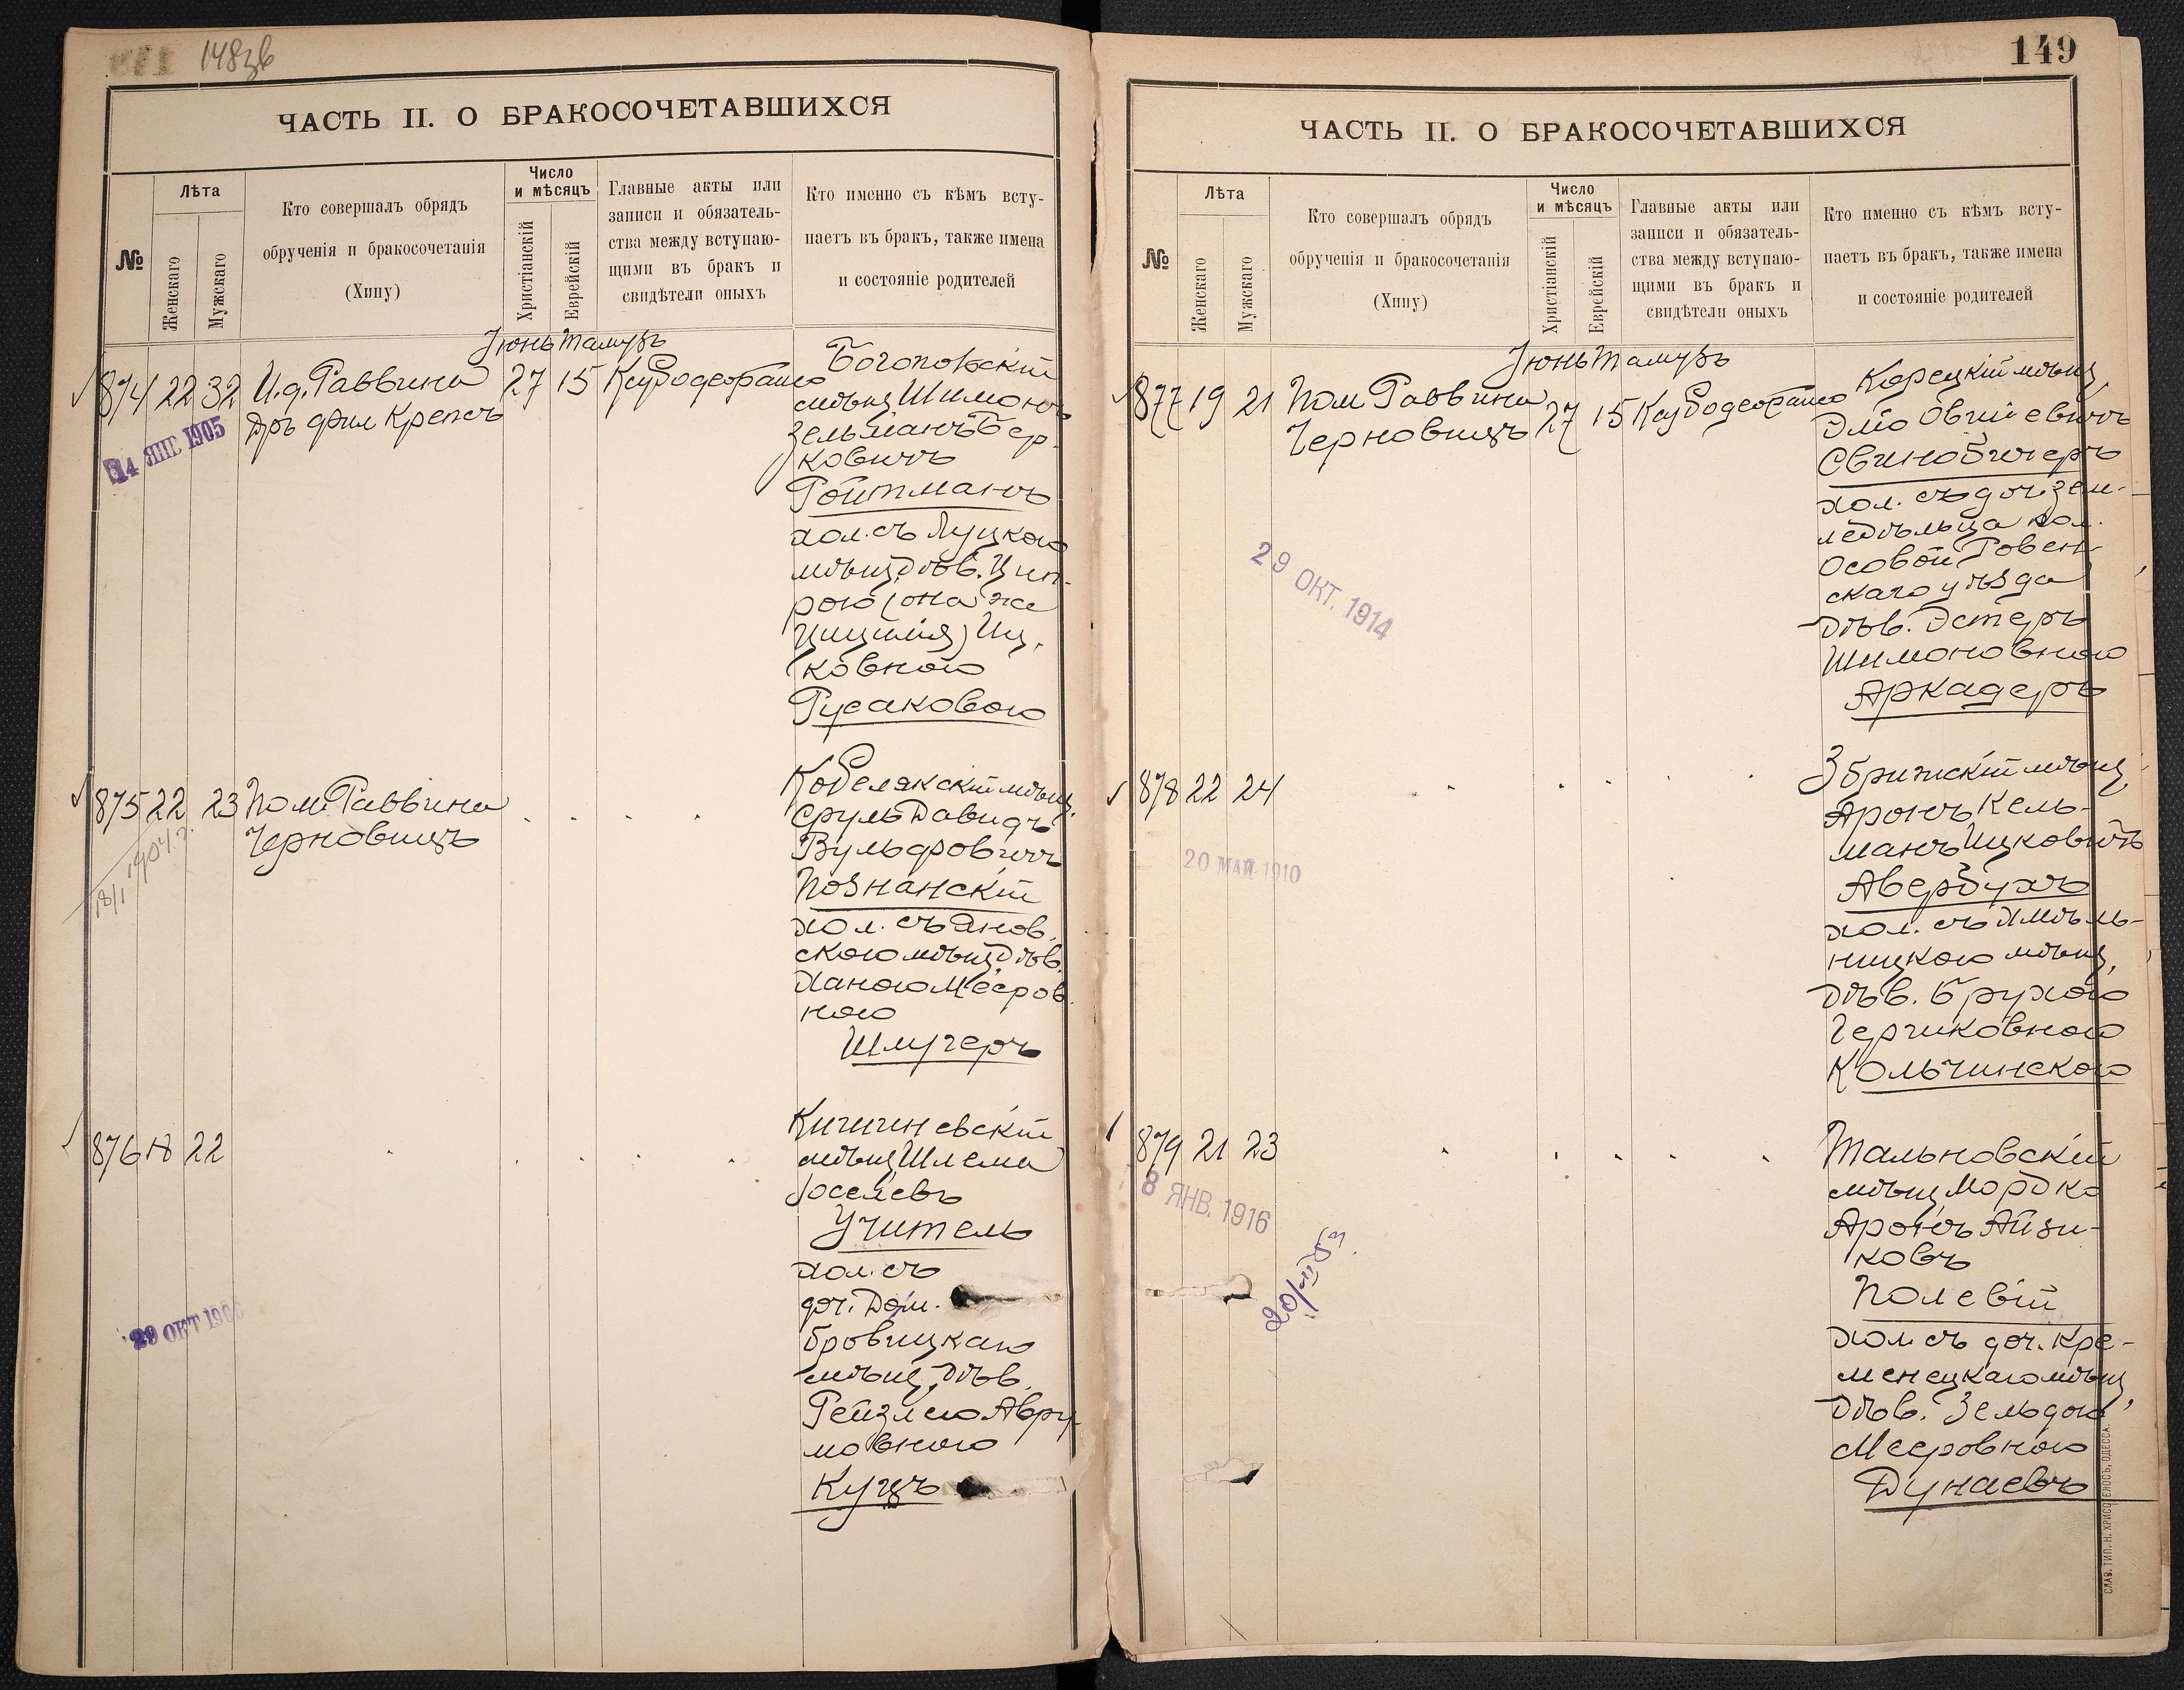 148зв
ЧАСТЬ II. О БРАКОСОЧЕТАВШИХСЯ
№
Лѣта
Женскаго
Мужскаго
Кто совершалъ обрядъ
обрученія и бракосочетанія
(Хипу)
Число
и мѣсяцъ
Христіанскій
Еврейскій
Главные акты или
записи и обязатель-
ства между вступаю-
щими въ бракъ и
свидѣтели оныхъ
Кто именно съ кѣмъ всту-
паетъ въ бракъ, также имена
и состояніе родителей
Іюнь Тамузъ
874 22 32 И.д. Раввина 27 15
Дръ фил Крепсъ
14 ЯНВ 1905
Богопольскій
мѣщ Шимонъ
Зельманъ Бер-
ковичъ
Ройтманъ
хол. съ Луцкою
мѣщ. дѣв. Цип-
рою (она же
Цицилія) Иц.
ковною
Русаковою
875 22 23 Пом. Раввина
Черновицъ
Кобелякскій мѣщ.
Сруль Давидъ
Вульфовичъ
Познанскій
хол. съ Янов.
скою мѣщ. дѣв.
Ханою Мееров.
ною
Шлугеръ
876 18 22
29 ОКТ 190
Кишиневскій
мѣщ Шлема
Іоселевъ
Учитель
хол. съ
доч. Дом.
бровицкаго
мѣщ. дѣв.
Рейзлею Авру-
мовною
Куцъ
149
ЧАСТЬ II. О БРАКОСОЧЕТАВШИХСЯ
№
Лѣта
Женскаго
Мужскаго
Кто совершалъ обрядъ
обрученія и бракосочетанія
(Хипу)
Число
и мѣсяцъ
Христіанскій
Еврейскій
Главные акты или
записи и обязатель-
ства между вступаю-
щими въ бракъ и
свидѣтели оныхъ
Кто именно съ кѣмъ всту-
паетъ въ бракъ, также имена
и состояніе родителей
Іюнь Тамузъ
877 19 21 Пом Раввина 27 15
Черновицъ
29 ОКТ. 1914
Корецкій мѣщ.
Эліо Овшіевичъ
Свинобичеръ
хол. съ доч. зем-
ледѣльца кол.
Осовой Ровен-
скаго уѣзда
дѣв. Эстеръ
Шимоновною
Аркадеръ
878 22 24
20 МАЙ 1910
Збрижскій мѣщ
Аронъ Кель-
манъ Ицковичъ
Авербухъ
хол. съ Хмѣль-
ницкою мѣщ.
дѣв. Брухою
Герчиковною
Кольчинскою
879 21 23
8 ЯНВ. 1916
Тальновскій
мѣщ Мордко
Аронъ Айзи-
ковъ
Полевій
хол. съ доч. Кре-
менецкаго мѣщ,
дѣв. Зельдою
Мееровною
Дунаевъ
СЛАВ. ТИП. Н. ХРИСОГЕЛОСЪ, ОДЕССА.